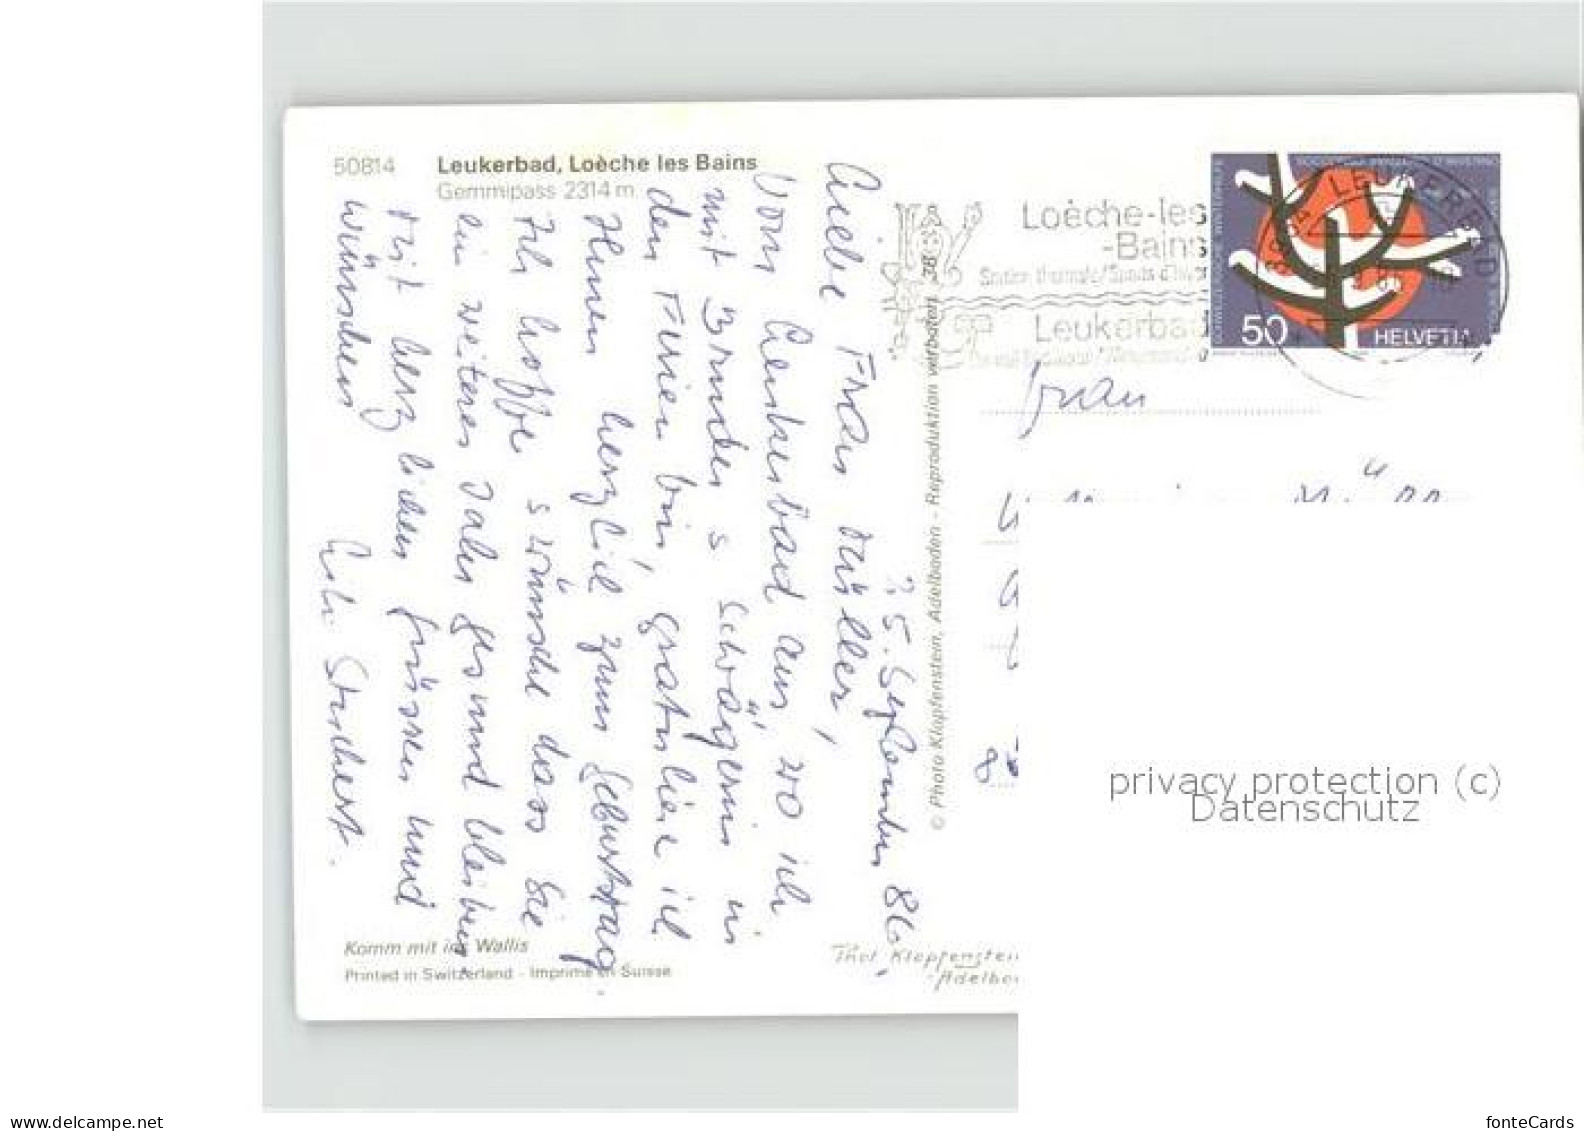 50814 Leukerbad, Loèche les Bains
Gemmipass 2314 m
25. September 86
Liebe Frau Müller,
Vom Leukerbad aus, wo ich
mit Bruder & Schwägerin in
den Ferien bin, gratuliere ich
Ihnen herzlich zum Geburtstag.
Ich hoffe & wünsche dass Sie
ein weiteres Jahr gesund bleiben.
Mit herzlichen grüssen und
wünschen
© Photo Klopfenstein, Adelboden - Reproduktion verboten
Komm mit ins Wallis
Printed in Switzerland - Imprimé en Suisse
Phot Klopfenstein
-Adelbo
Loèche-les
-Bains
Leukerbad
LEUKERBAD
50
HELVETIA
Frau
privacy protection (c)
Datenschutz
www.delcampe.net
fonteCards